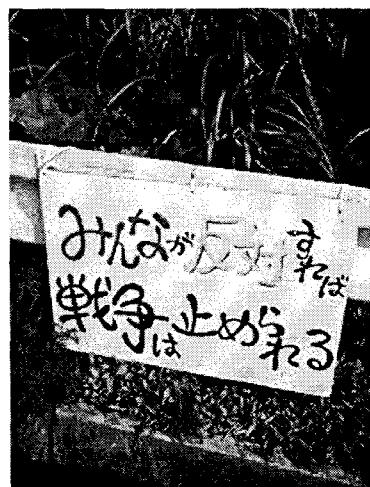 みんなが反対すれば
戦争は止められる